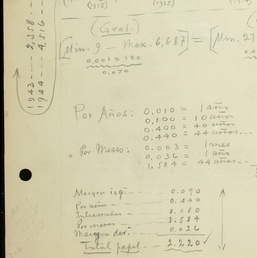 (1915)
(1925)
(Gral.)
[Min. 9 - Max. 6,687] = [Min. 27
0,001 = 190
0.070
1943 --- 2,358
1944 --- 4,516
Por Años: 0.010 = 1 año
0.100 = 10 años
0.400 = 40 años
0.440 = 44 años...
Por Meses: 0.003 = 1 mes
0.036 = 1 año
1.584 = 44 años...
Margen izq. --- 0.090
Por años --- 0.440
Intermedio --- 0.080
Por meses --- 1.584
Margen der. --- 0.026
Total papel --- 2.220